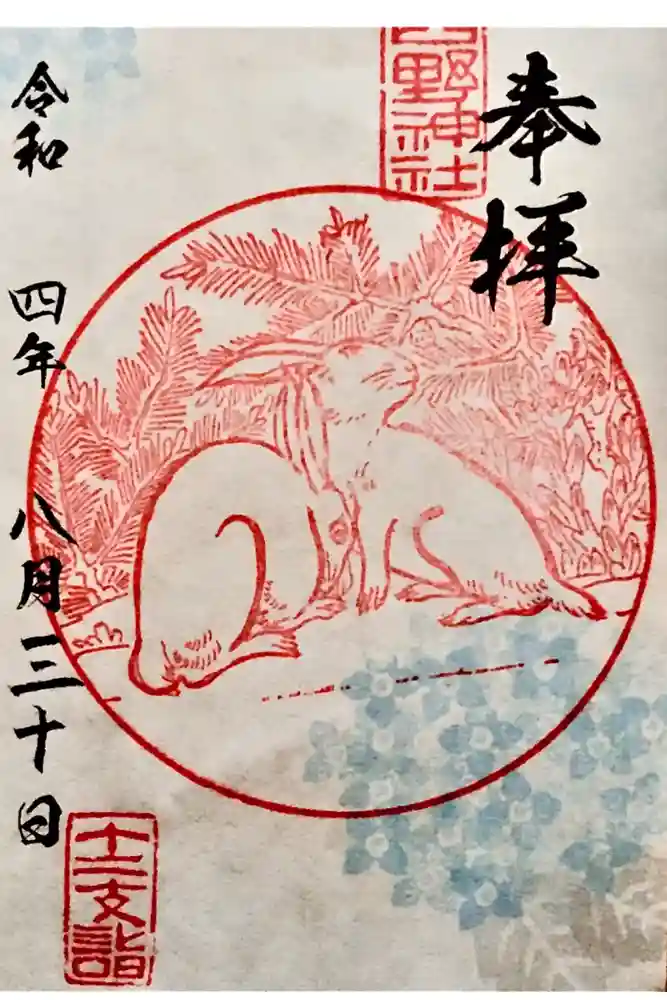 奉拝
野神社
令和 四年 八月 三十日
十二支詣